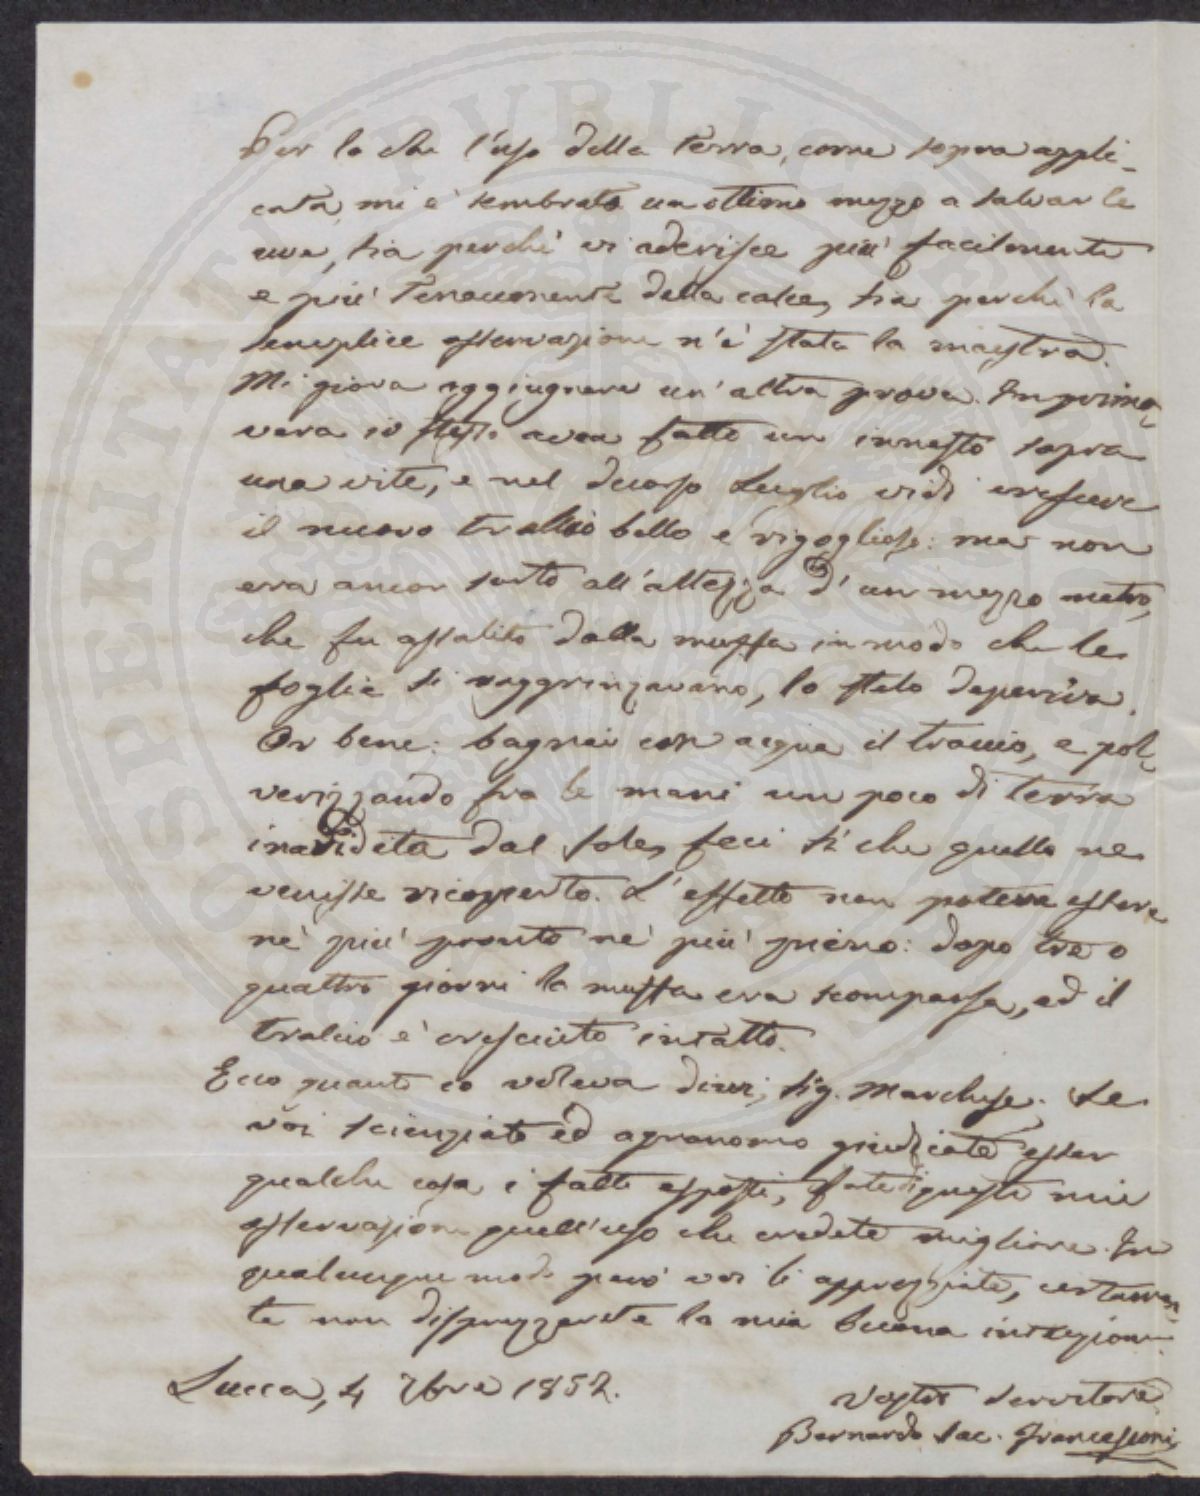 Per lo che l'uso della terra, come sopra appli-
cata, mi è sembrato un ottimo mezzo a salvar le
uve, sia perchè vi aderisce più facilmente
e più tenacemente della calce, sia perchè la
semplice osservazione n'è stata la maestra.
Mi giova aggiugnere un'altra prova. In prima-
vera io stesso avea fatto un innesto sopra
una vite, e nel decorso Luglio vidi crescere
il nuovo tralcio bello e rigoglioso: ma non
era ancor sorto all'altezza d'un mezzo metro,
che fu assalito dalla muffa in modo che le
foglie si raggrinzavano, lo stelo deperiva.
Or bene: bagnai con acqua il tralcio, e pol-
verizzando fra le mani un poco di terra
inaridita dal sole, feci sì che quello ne
venisse ricoperto. L'effetto non poteva essere
nè più pronto nè più pieno: dopo tre o
quattro giorni la muffa era scomparsa, ed il
tralcio è cresciuto intatto.
Ecco quanto io voleva dirvi, Sig. Marchese. Se
voi scienziato ed agronomo giudicate esser
qualche cosa i fatti esposti, fate di queste mie
osservazioni quell'uso che credete migliore. In
qualunque modo però voi le apprezziate, certamen-
te non disprezzerete la mia buona intenzione.
Lucca, 4 7bre 1852.
Vostro Servitore
Bernardo Sac. Francesconi
SOSPERITATI PVBLICAE